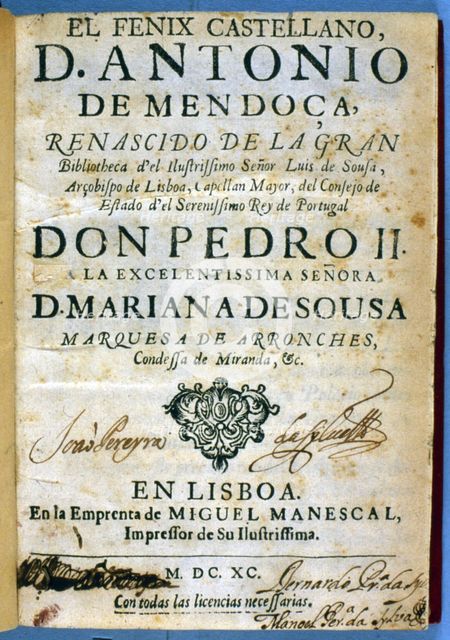 EL FENIX CASTELLANO,
D. ANTONIO
DE MENDOÇA,
RENASCIDO DE LA GRAN
Bibliotheca d'el Ilustrissimo Señor Luis de Sousa,
Arçobispo de Lisboa, Capellan Mayor, del Consejo de
Estado d'el Serenissimo Rey de Portugal
DON PEDRO II.
A LA EXCELENTISSIMA SEÑORA
D. MARIANA DE SOUSA
MARQUESA DE ARRONCHES,
Condessa de Miranda, &c.
Joaõ Pereyra da Sylva
EN LISBOA.
En la Emprenta de MIGUEL MANESCAL,
Impressor de Su Ilustrissima.
M. DC. XC.
Bernardo Prª da Syl
Con todas las licencias necessarias.
Manoel Per.ª da Sylva